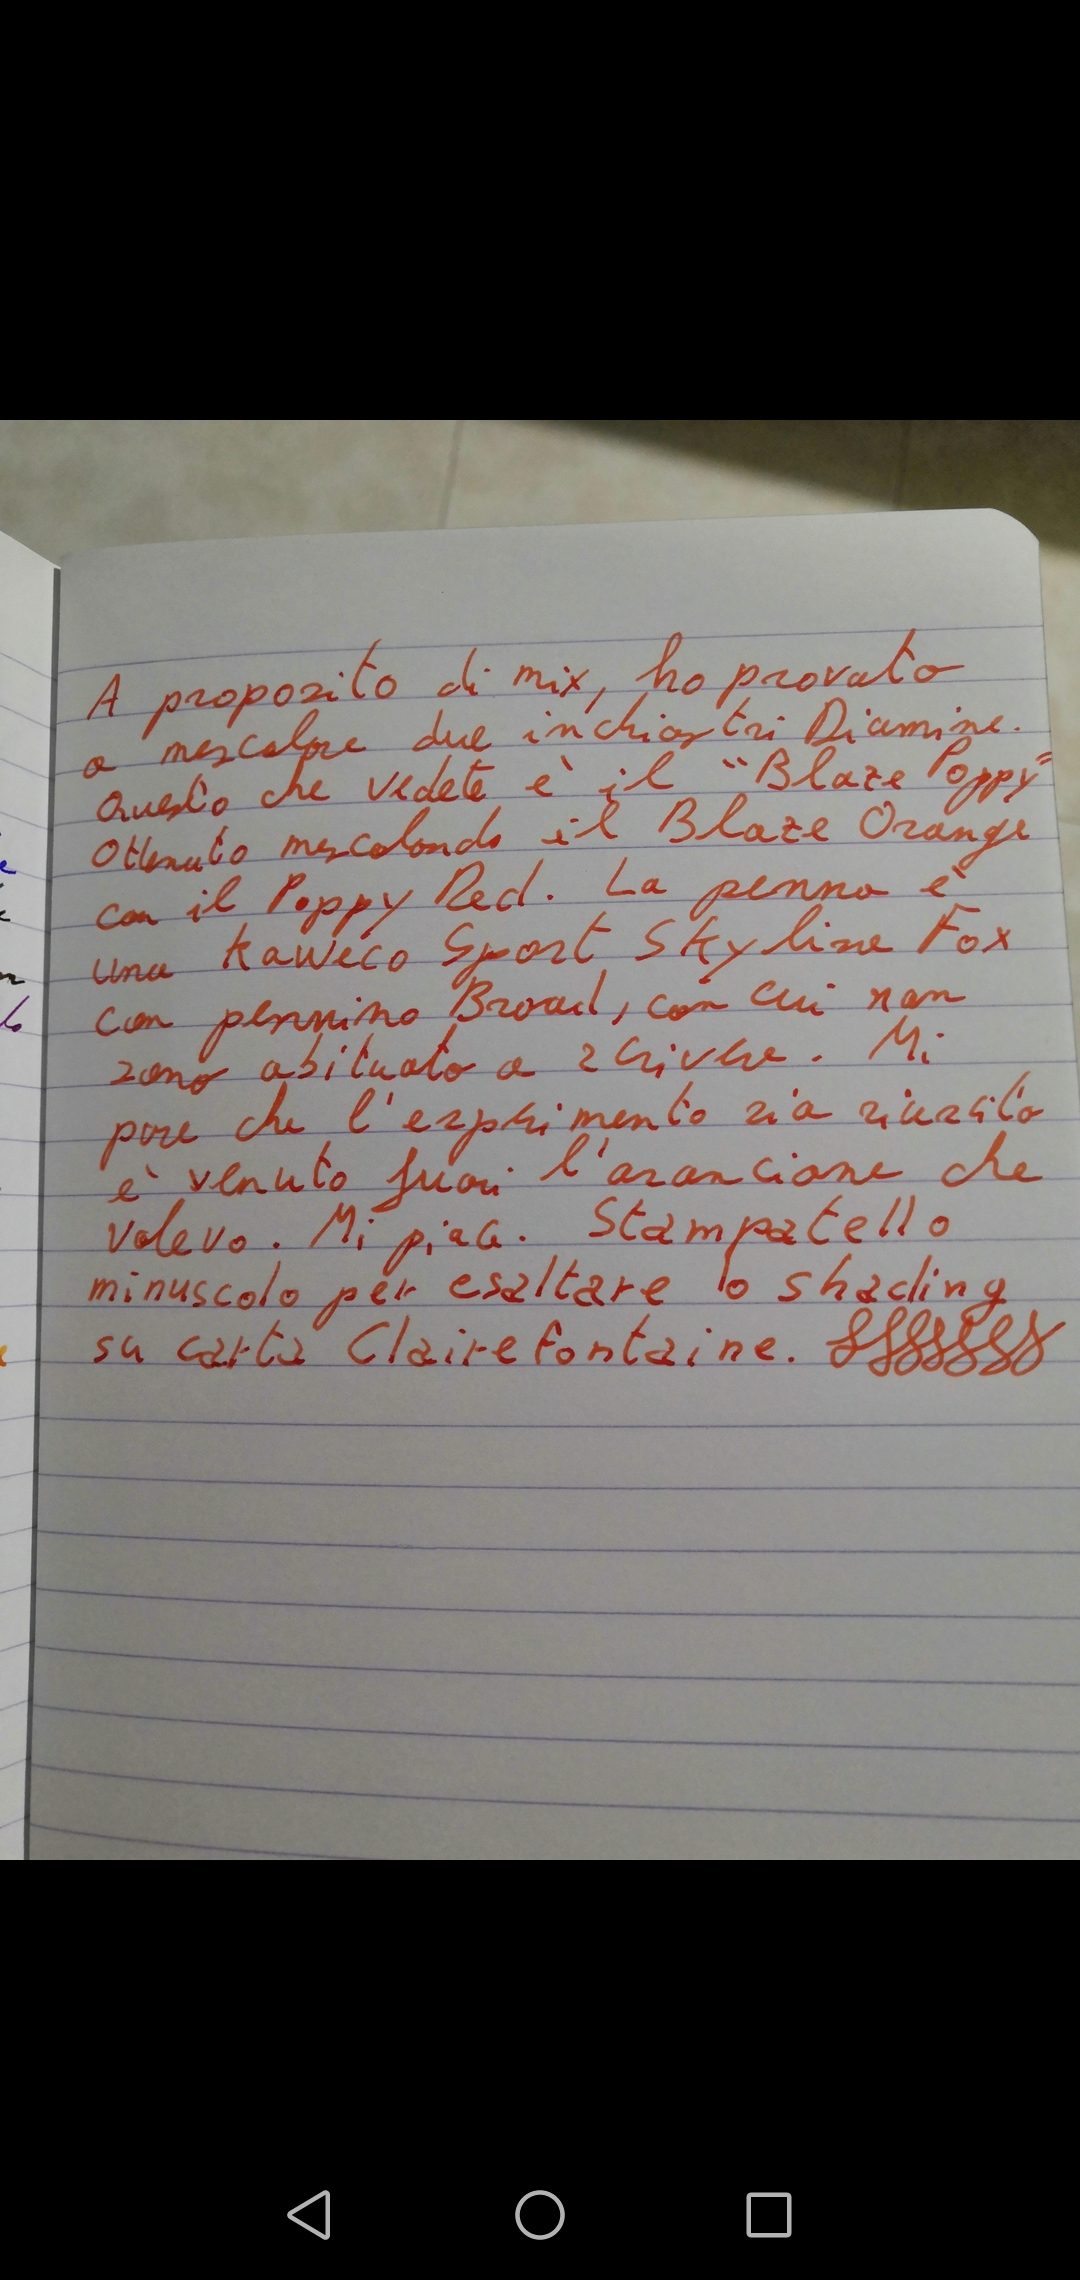 A proposito di mix, ho provato
a mescolare due inchiostri Diamine.
Questo che vedete è il "Blaze Poppy"
Ottenuto mescolando il Blaze Orange
con il Poppy Red. La penna è
una Kaweco Sport Skyline Fox
con pennino Broad, con cui non
sono abituato a scrivere. Mi
pare che l'esperimento sia riuscito
è venuto fuori l'arancione che
volevo. Mi piace. Stampatello
minuscolo per esaltare lo shading
su carta Clairefontaine.